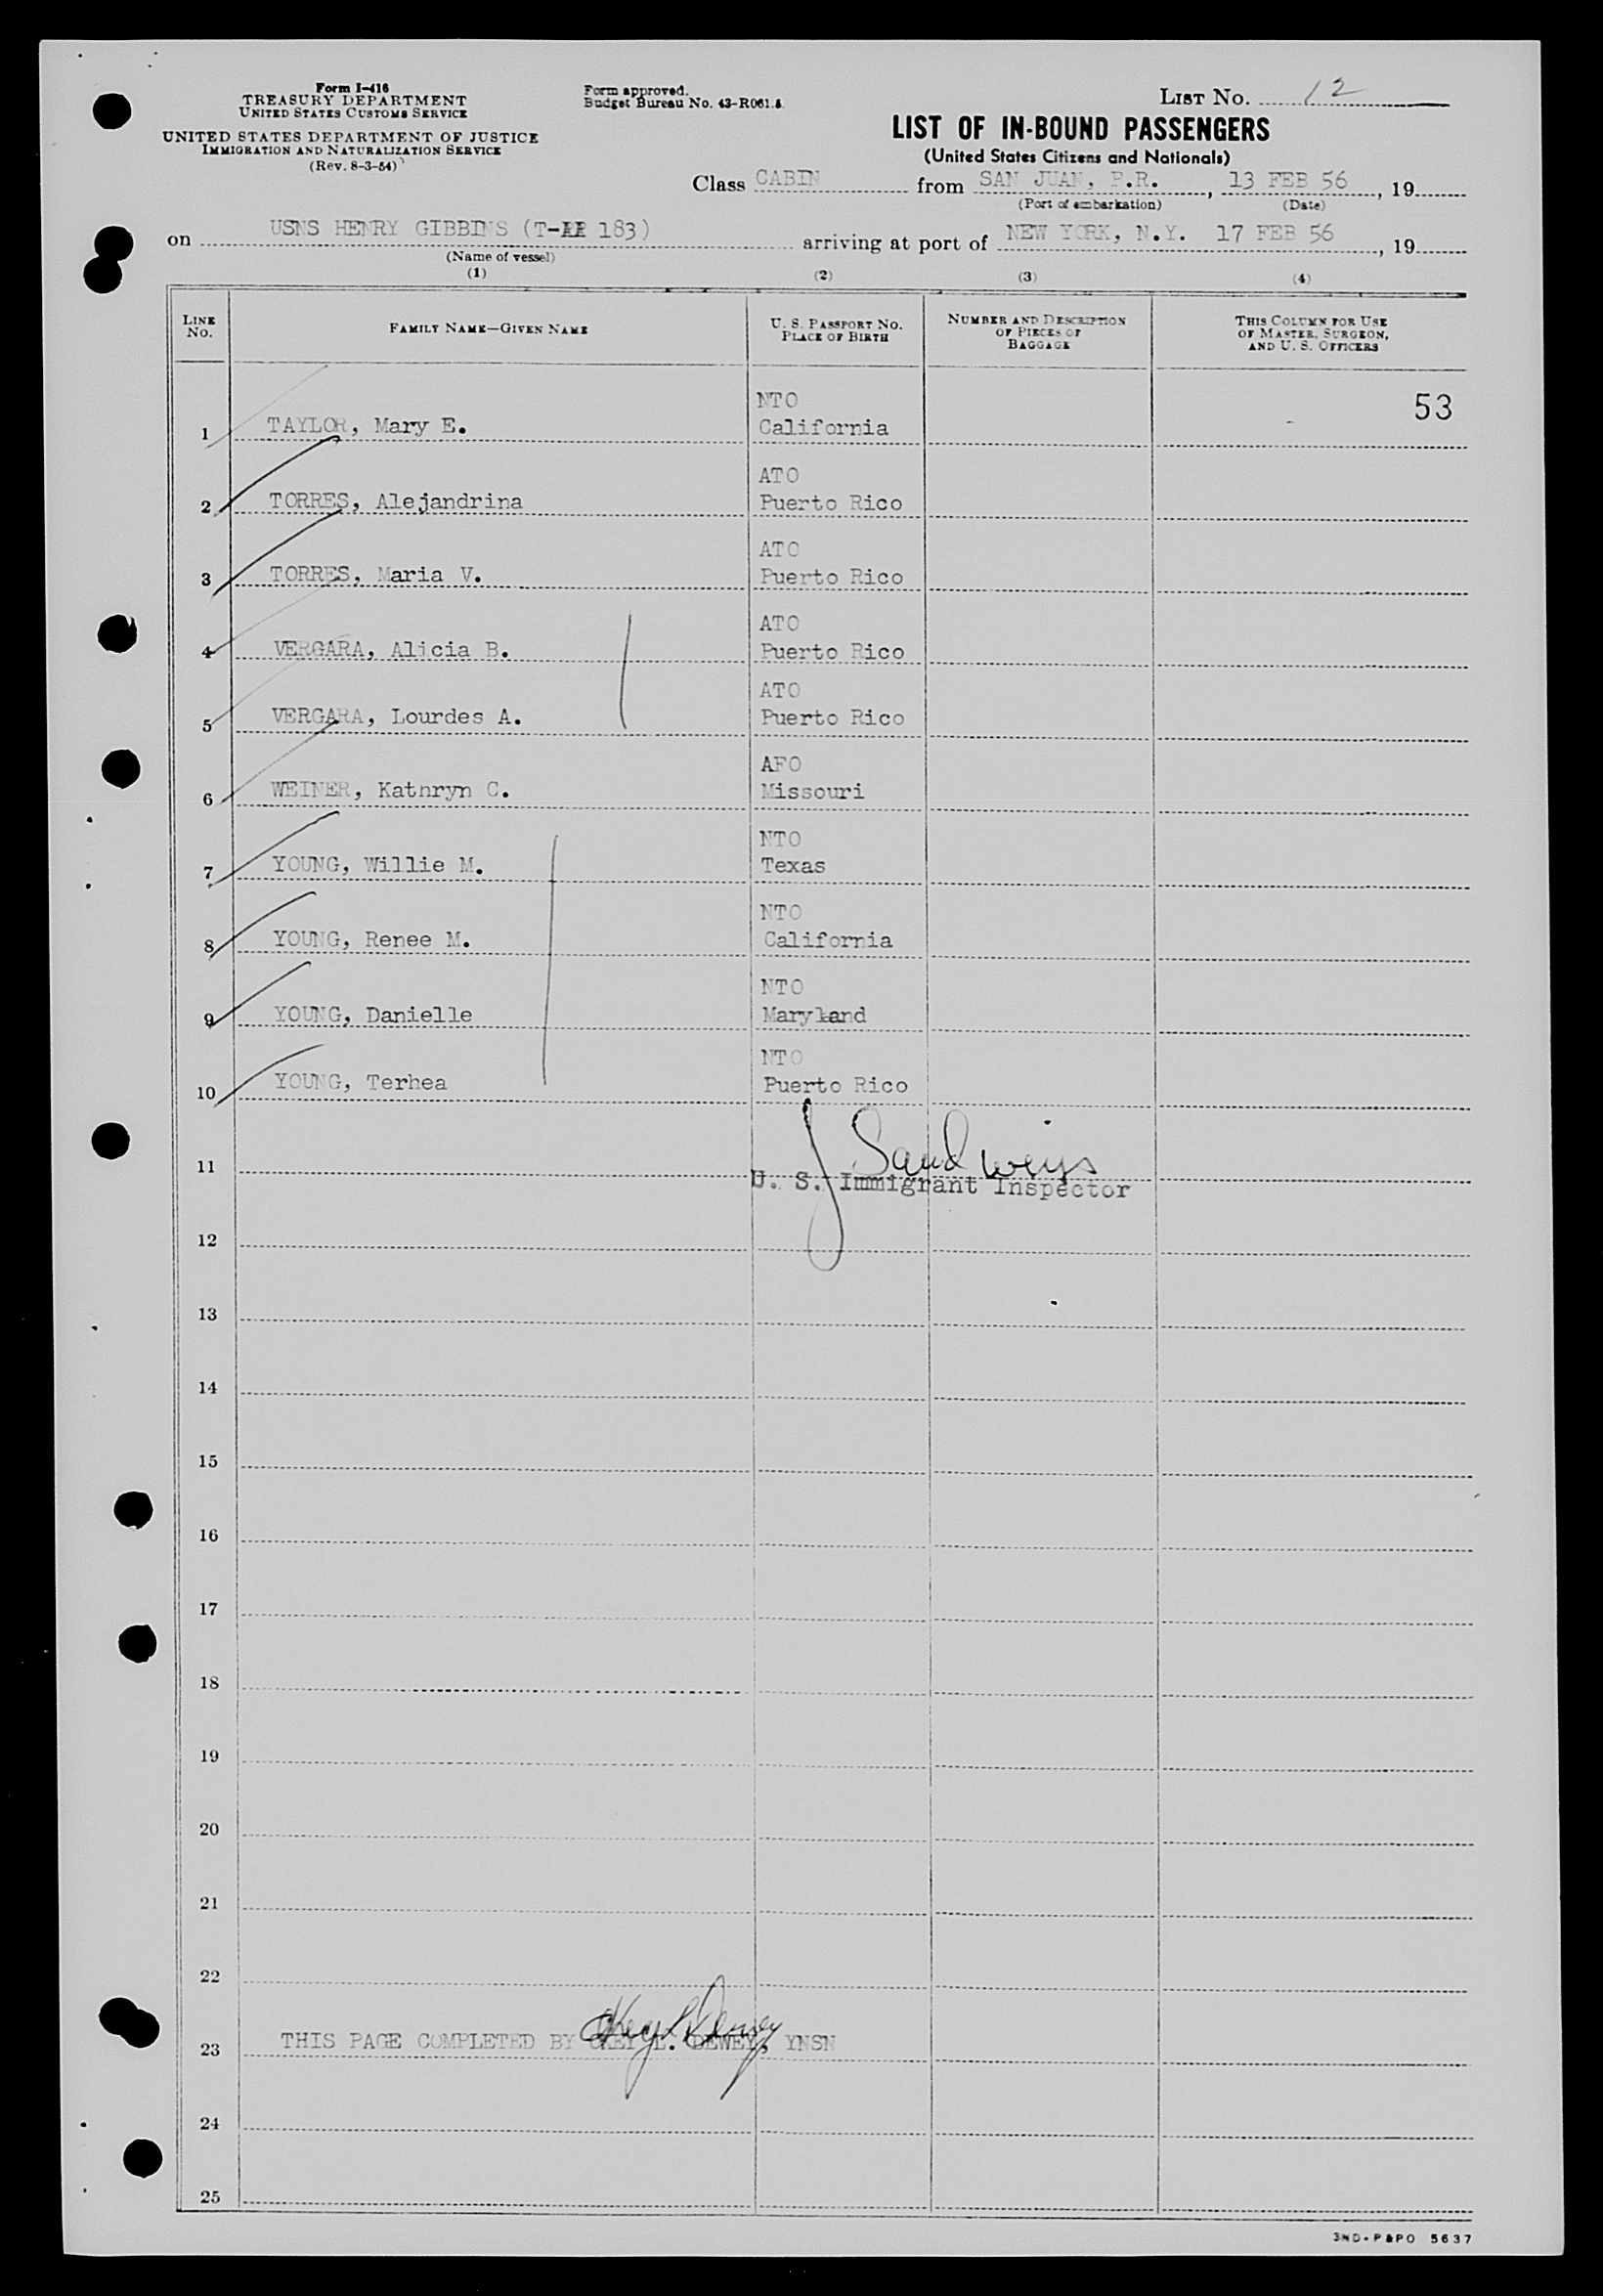 Form I-416
TREASURY DEPARTMENT
UNITED STATES CUSTOMS SERVICE
UNITED STATES DEPARTMENT OF JUSTICE
IMMIGRATION AND NATURALIZATION SERVICE
(Rev. 8-3-54)
Form approved.
Budget Bureau No. 43-R061.5.
LIST No. 12
LIST OF IN-BOUND PASSENGERS
(United States Citizens and Nationals)
Class CABIN from SAN JUAN, P.R., 13 FEB 56, 19
(Port of embarkation) (Date)
on USNS HENRY GIBBINS (T-AP 183) arriving at port of NEW YORK, N.Y. 17 FEB 56, 19
(Name of vessel)
(1) (2) (3) (4)
LINE No. FAMILY NAME—GIVEN NAME U. S. PASSPORT No. PLACE OF BIRTH NUMBER AND DESCRIPTION OF PIECES OF BAGGAGE THIS COLUMN FOR USE OF MASTER, SURGEON, AND U. S. OFFICERS
NTO 53
1 TAYLOR, Mary E. California
ATO
2 TORRES, Alejandrina Puerto Rico
ATO
3 TORRES, Maria V. Puerto Rico
ATO
4 VERGARA, Alicia B. Puerto Rico
ATO
5 VERGARA, Lourdes A. Puerto Rico
AFO
6 WEINER, Kathryn C. Missouri
NTO
7 YOUNG, Willie M. Texas
NTO
8 YOUNG, Renee M. California
NTO
9 YOUNG, Danielle Maryland
NTO
10 YOUNG, Terhea Puerto Rico
J Sandweiss
11 U. S. Immigrant Inspector
12
13
14
15
16
17
18
19
20
21
22
23 THIS PAGE COMPLETED BY L. DEWEY, YNSN
24
25
3ND-P&PO 5637